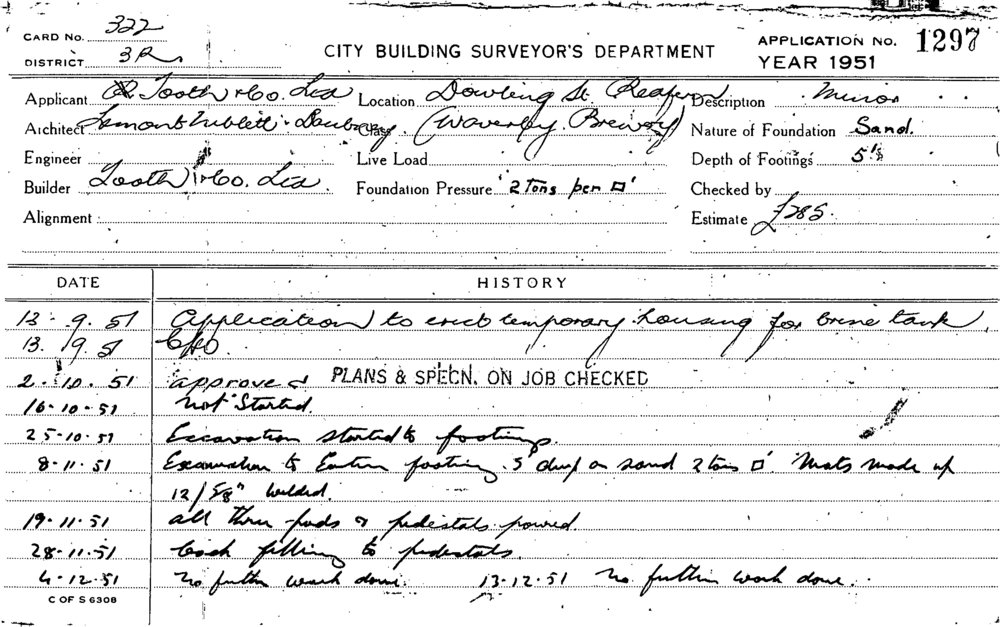 CARD No. 322
DISTRICT 3R
CITY BUILDING SURVEYOR'S DEPARTMENT
APPLICATION No. 1297
YEAR 1951
Applicant Tooth & Co. Ltd Location Dowling St. Redfern Description Minor
Architect Lamont Niblett Class (Waverley Brewery) Nature of Foundation Sand.
Engineer Live Load Depth of Footings 5'
Builder Tooth & Co. Ltd. Foundation Pressure 2 Tons per □'
Checked by
Alignment Estimate £285.
DATE HISTORY
13.9.51 Application to erect temporary housing for brine tank.
13.9.51
2.10.51 approved PLANS & SPECN. ON JOB CHECKED
16-10-51 Not Started.
25-10-51 Excavation started to footings.
8-11-51 Excavation to Eastern footing 5' deep on sand 2 tons □'. Mats made up
12/5/8" welded.
19-11-51 all three pads & pedestals poured.
28-11-51 back filling to pedestals.
4-12-51 No further work done. 13-12-51 No further work done.
C OF S 6308